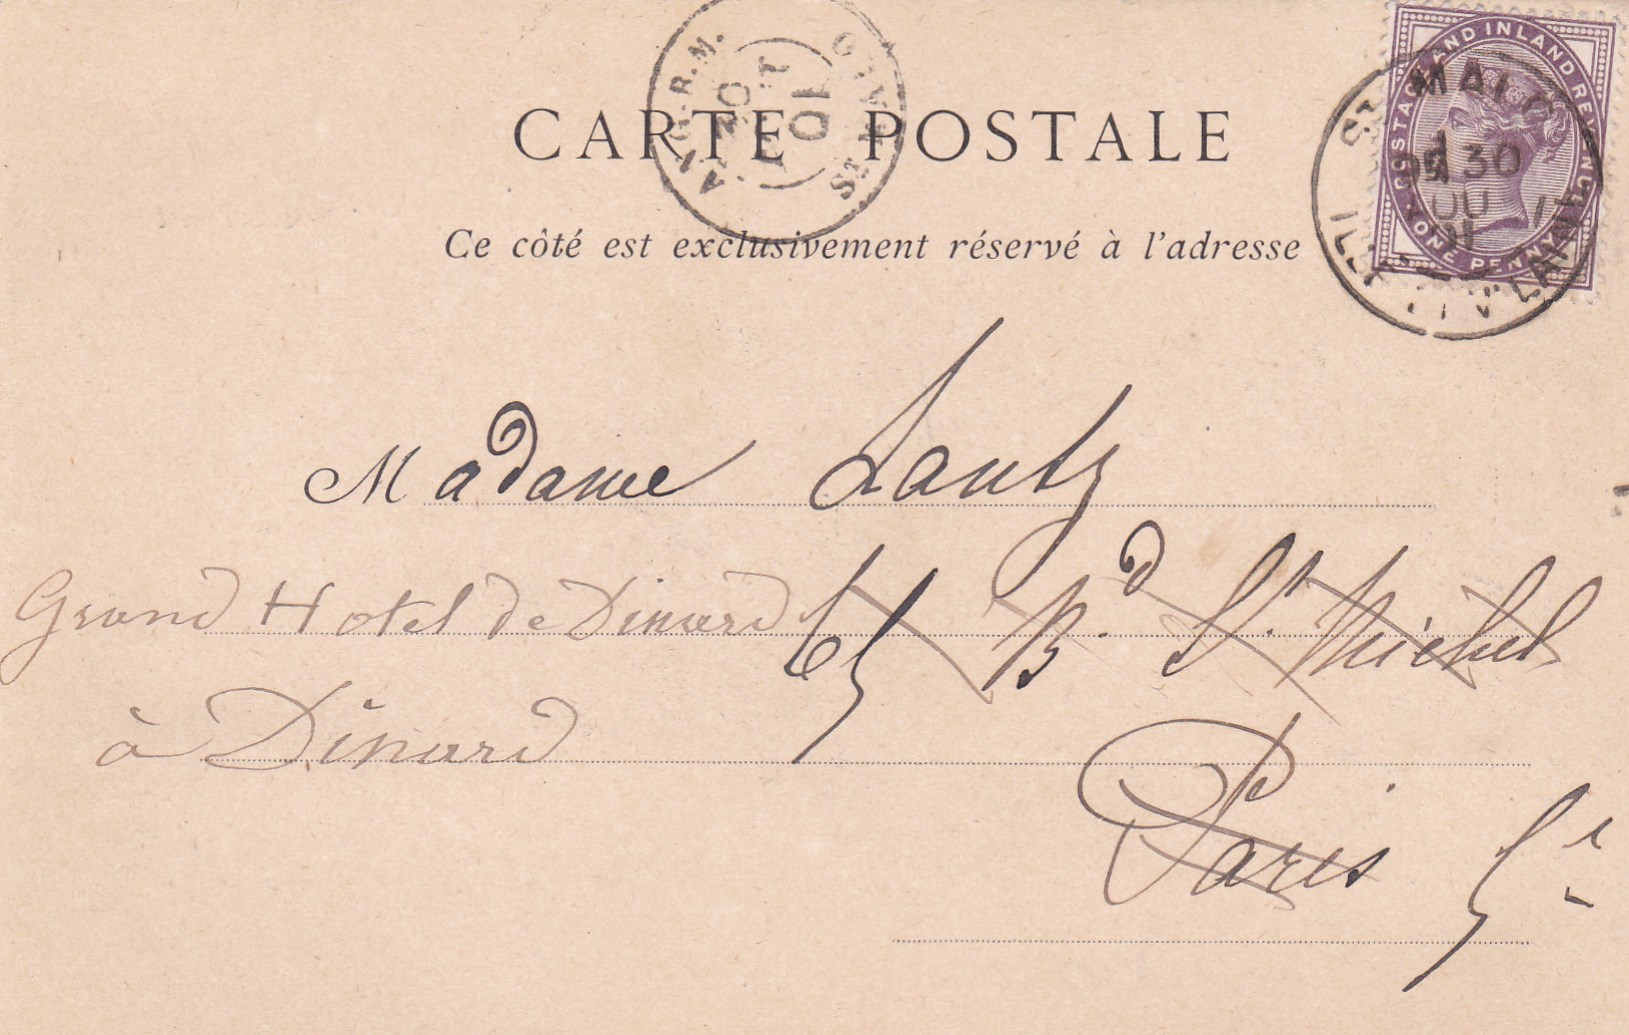 CARTE POSTALE
Ce côté est exclusivement réservé à l'adresse
ANG.B.M. ST MALO
30
01
POSTAGE AND INLAND REVENUE
ONE PENNY
ST MALO
30
01
ILLE ET VILAINE
Madame Lantz
65 B.d St. Michel
Grand Hotel de Dinard
à Dinard
Paris 5e